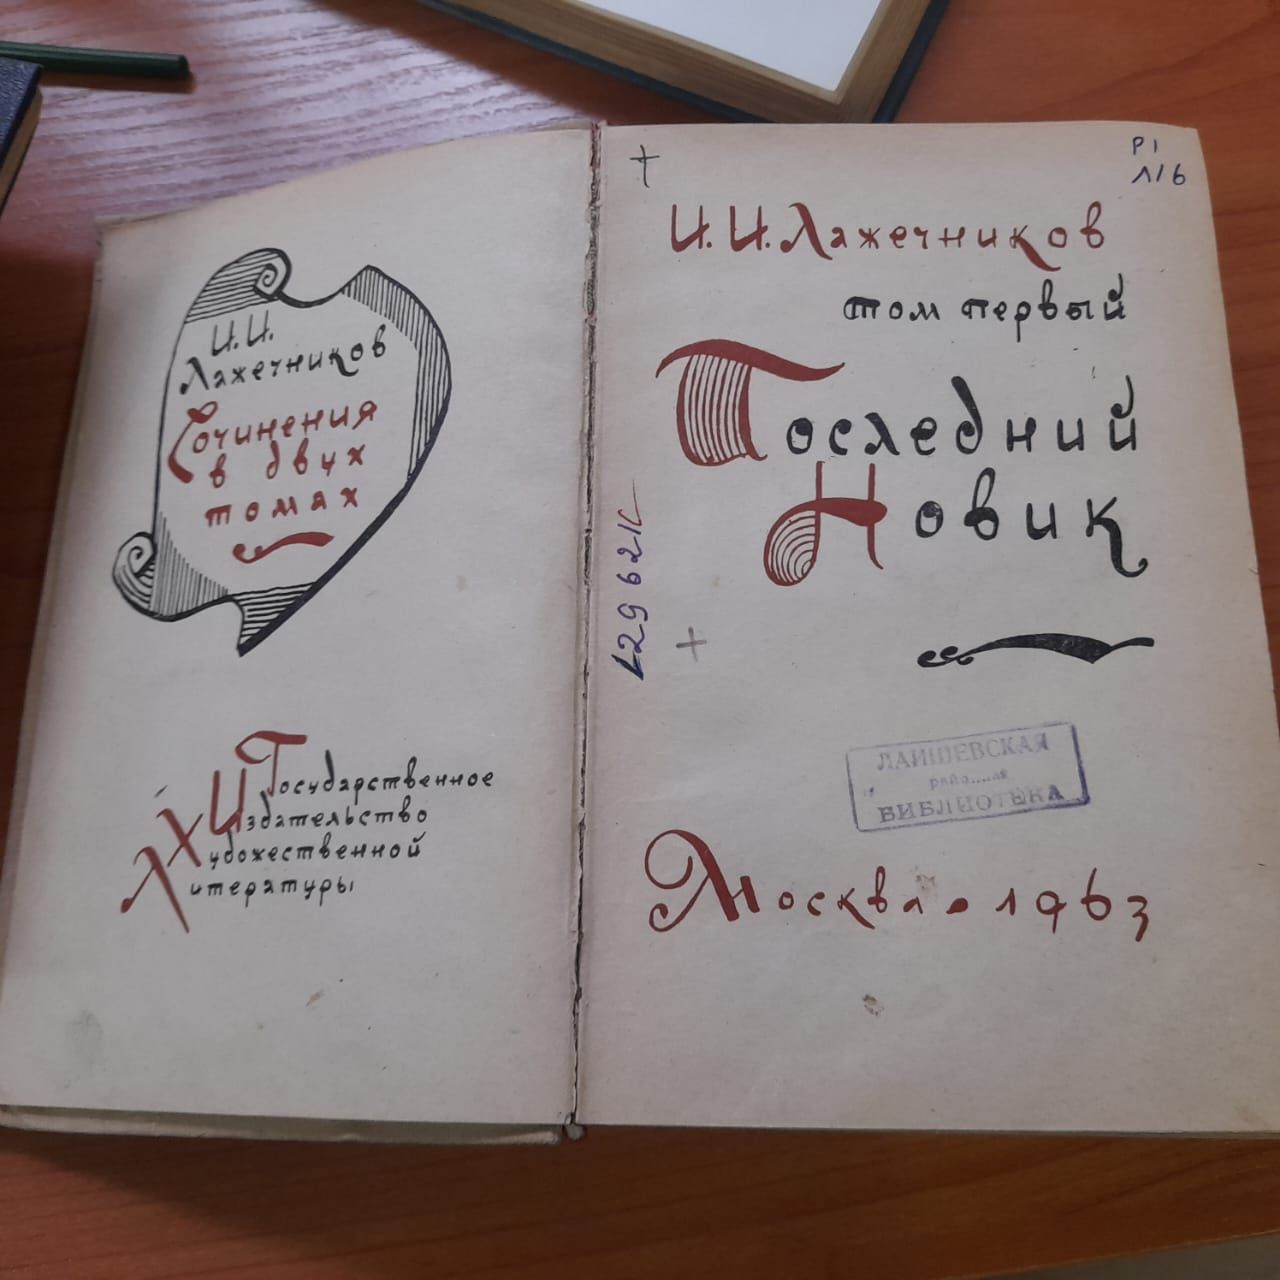 И. И.
Лажечников
Сочинения
в двух
томах
Государственное
Издательство
Художественной
Литературы
Р1
Л16
И. И. Лажечников
том первый
Последний
Новик
29621К
ЛАИШЕВСКАЯ
БИБЛИОТЕКА
Москва • 1963